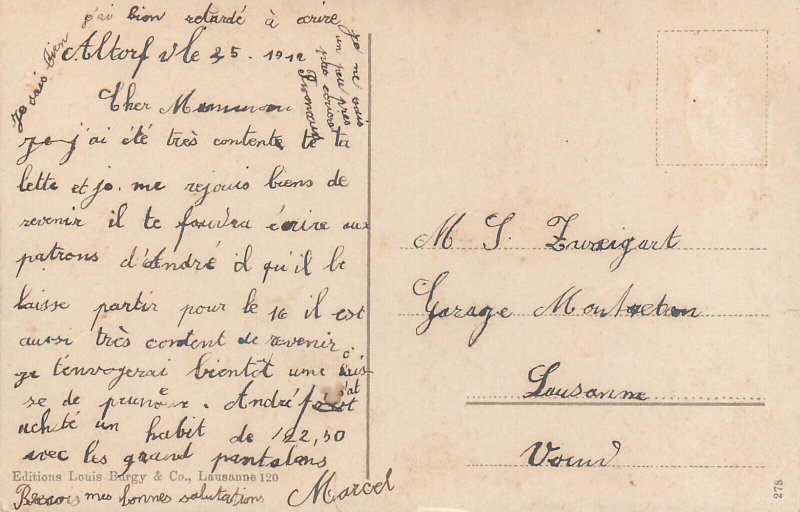 j'ai bien retardé à ecrire
je ne vais
un peu pres
pas
Je vais bien
Altorf le 25. 1912
Cher Mamman
Je j'ai été très contente te ta
lette et je. me rejouis biens de
revenir il te faudra écrire aux
patrons d'André il qu'il le
laisse partir pour le 16 il est
aussi très content de revenir
je t'envoyerai bientôt une cais-
se de pruneaux. André s'est
acheté un habit de 122,50
avec les grand pantalons
Recois mes bonnes salutations Marcel
Editions Louis Burgy & Co., Lausanne 120
M S. Zweigart
Garage Montbenon
Lausanne
Vaud
278